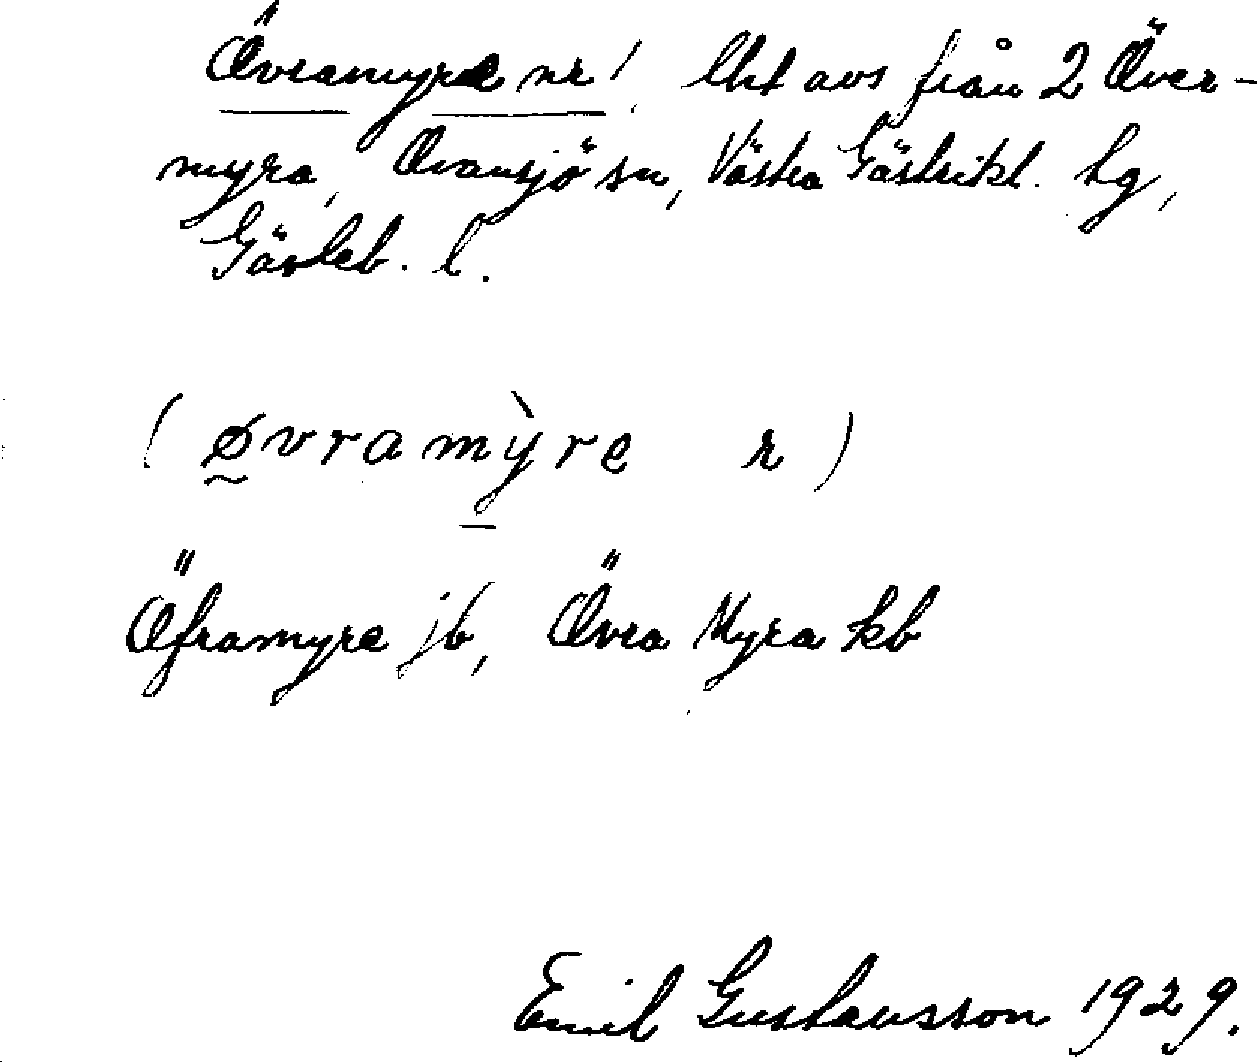 Övramyre nr 1. Lht avs från 2 Över-
myra, Ovansjö sn, Västra Gästrikl. hg,
Gävleb. l.
( øvramỳre r )
Öframyre jb, Övra Myra kb
Emil Gustavsson 1929.